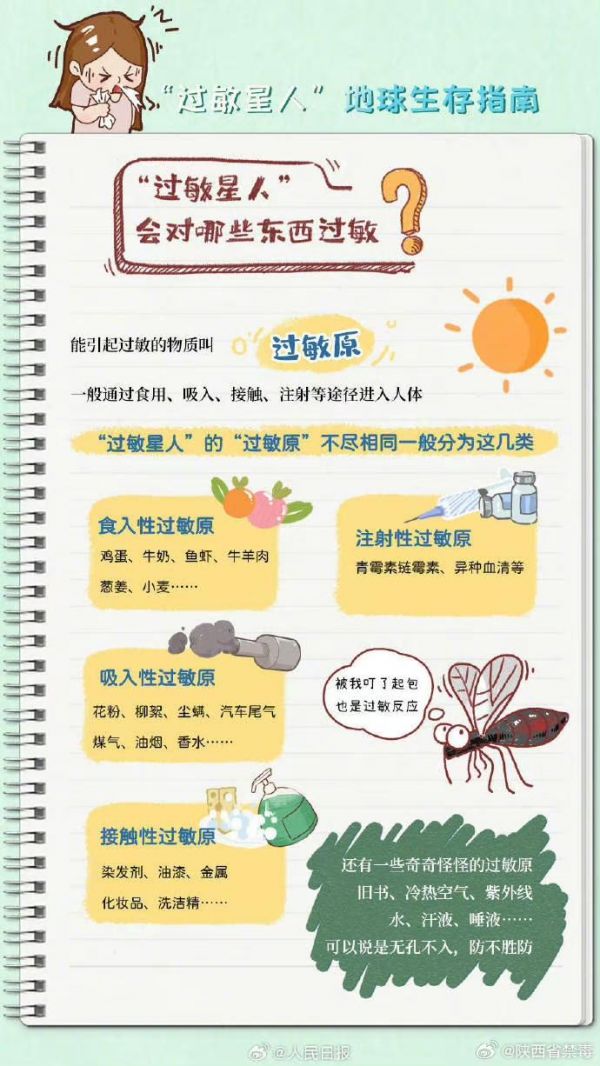 “过敏星人”地球生存指南
“过敏星人”
会对哪些东西过敏
?
能引起过敏的物质叫 过敏原
一般通过食用、吸入、接触、注射等途径进入人体
“过敏星人”的“过敏原”不尽相同一般分为这几类
食入性过敏原
鸡蛋、牛奶、鱼虾、牛羊肉
葱姜、小麦……
注射性过敏原
青霉素链霉素、异种血清等
吸入性过敏原
花粉、柳絮、尘螨、汽车尾气
煤气、油烟、香水……
被我叮了起包
也是过敏反应
接触性过敏原
染发剂、油漆、金属
化妆品、洗洁精……
还有一些奇奇怪怪的过敏原
旧书、冷热空气、紫外线
水、汗液、唾液……
可以说是无孔不入，防不胜防
@人民日报
@陕西省禁毒